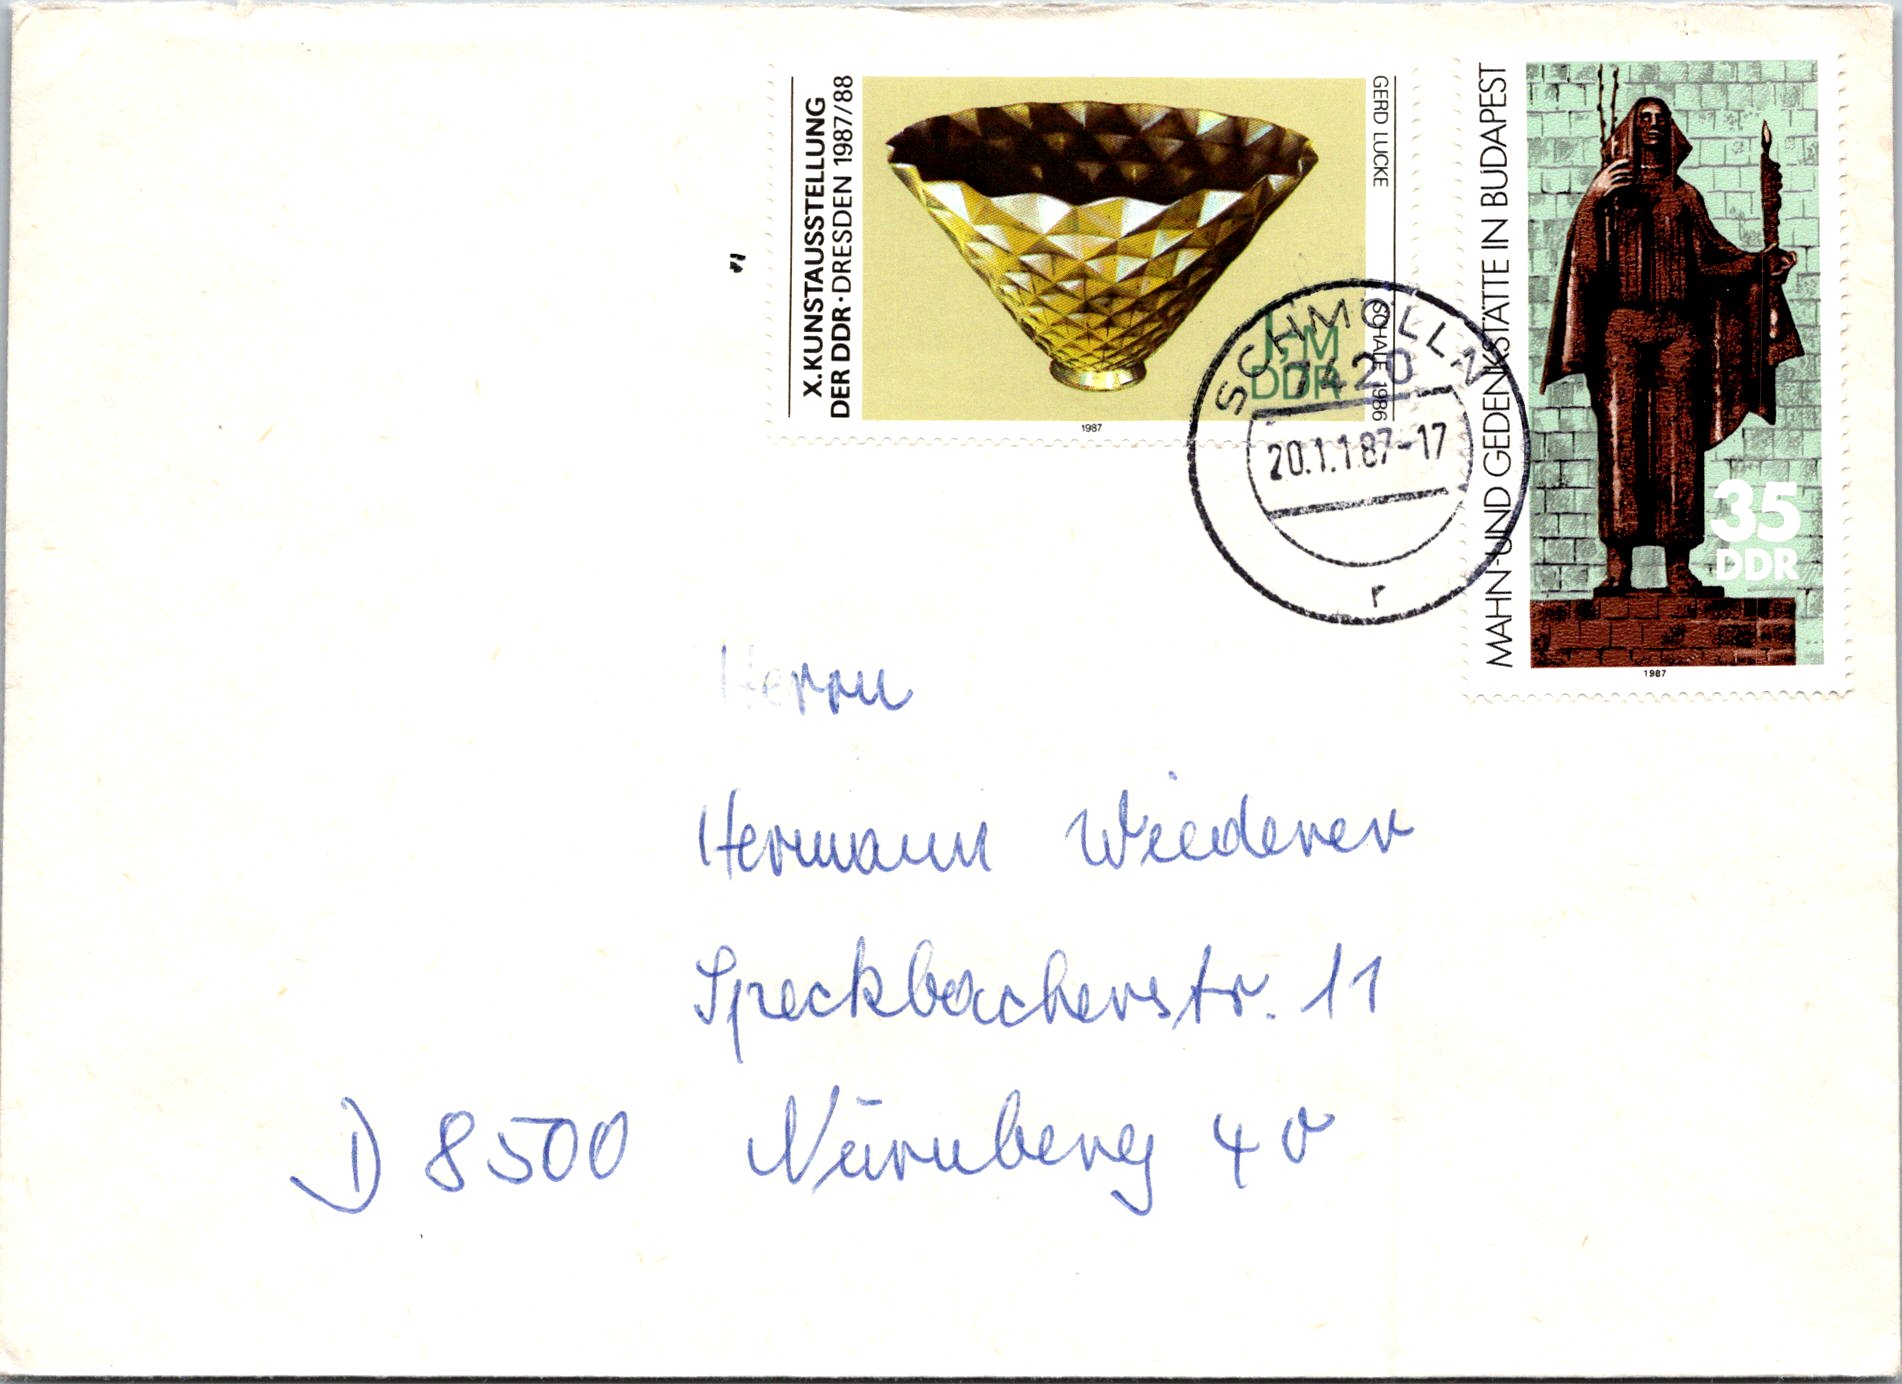 X.KUNSTAUSSTELLUNG
DER DDR·DRESDEN 1987/88
GERD LUCKE
SCHALE 1986
1,-M
DDR
1987
MAHN-UND GEDENKSTÄTTE IN BUDAPEST
35
DDR
1987
SCHMÖLLN
7420
20.11.87-17
r
Herrn
Hermann Wiederer
Speckbacherstr. 11
D 8500 Nürnberg 40